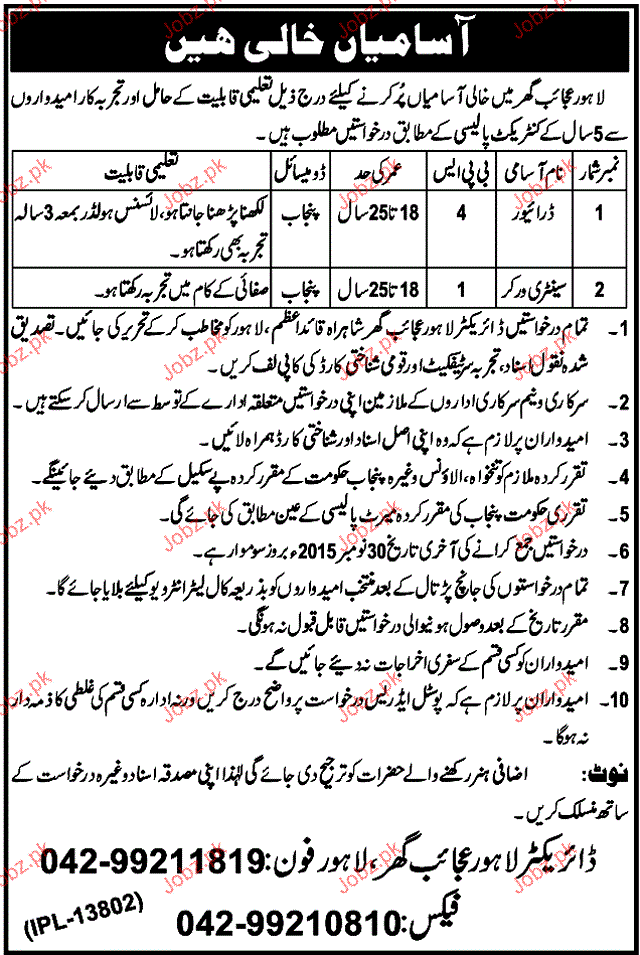 آسامیاں خالی ھیں
لاہور عجائب گھر میں خالی آسامیاں پُر کرنے کیلئے درج ذیل تعلیمی قابلیت کے حامل اور تجربہ کار امیدواروں
سے 5 سال کے کنٹریکٹ پالیسی کے مطابق درخواستیں مطلوب ہیں۔
نمبر شمار نام آسامی بی پی ایس عمر کی حد ڈومیسائل تعلیمی قابلیت
1 ڈرائیور 4 18 تا 25 سال پنجاب لکھنا پڑھنا جانتا ہو، لائسنس ہولڈر بمعہ 3 سالہ
تجربہ بھی رکھتا ہو۔
2 سینٹری ورکر 1 18 تا 25 سال پنجاب صفائی کے کام میں تجربہ رکھتا ہو۔
1۔ تمام درخواستیں ڈائریکٹر لاہور عجائب گھر شاہراہ قائداعظم، لاہور کو مخاطب کر کے تحریر کی جائیں۔ تصدیق
شدہ نقول اسناد، تجربہ سرٹیفکیٹ اور قومی شناختی کارڈ کی کاپی لف کریں۔
2۔ سرکاری و نیم سرکاری اداروں کے ملازمین اپنی درخواستیں متعلقہ ادارے کے توسط سے ارسال کر سکتے ہیں۔
3۔ امیدواران پر لازم ہے کہ وہ اپنی اصل اسناد اور شناختی کارڈ ہمراہ لائیں۔
4۔ تقرر کردہ ملازم کو تنخواہ، الاؤنس وغیرہ پنجاب حکومت کے مقرر کردہ پے سکیل کے مطابق دیئے جائینگے۔
5۔ تقرری حکومت پنجاب کی مقرر کردہ میرٹ پالیسی کے عین مطابق کی جائے گی۔
6۔ درخواستیں جمع کرانے کی آخری تاریخ 30 نومبر 2015ء بروز سوموار ہے۔
7۔ تمام درخواستوں کی جانچ پڑتال کے بعد منتخب امیدواروں کو بذریعہ کال لیٹر انٹرویو کیلئے بلایا جائے گا۔
8۔ مقرر تاریخ کے بعد وصول ہونیوالی درخواستیں قابل قبول نہ ہونگی۔
9۔ امیدواران کو کسی قسم کے سفری اخراجات نہ دیئے جائیں گے۔
10۔ امیدواران پر لازم ہے کہ پوسٹل ایڈریس درخواست پر واضح درج کریں ورنہ ادارہ کسی قسم کی غلطی کا ذمہ دار
نہ ہو گا۔
نوٹ: اضافی ہنر رکھنے والے حضرات کو ترجیح دی جائے گی لہٰذا اپنی مصدقہ اسناد وغیرہ درخواست کے
ساتھ منسلک کریں۔
ڈائریکٹر لاہور عجائب گھر، لاہور فون: 042-99211819
فیکس: 042-99210810
(IPL-13802)